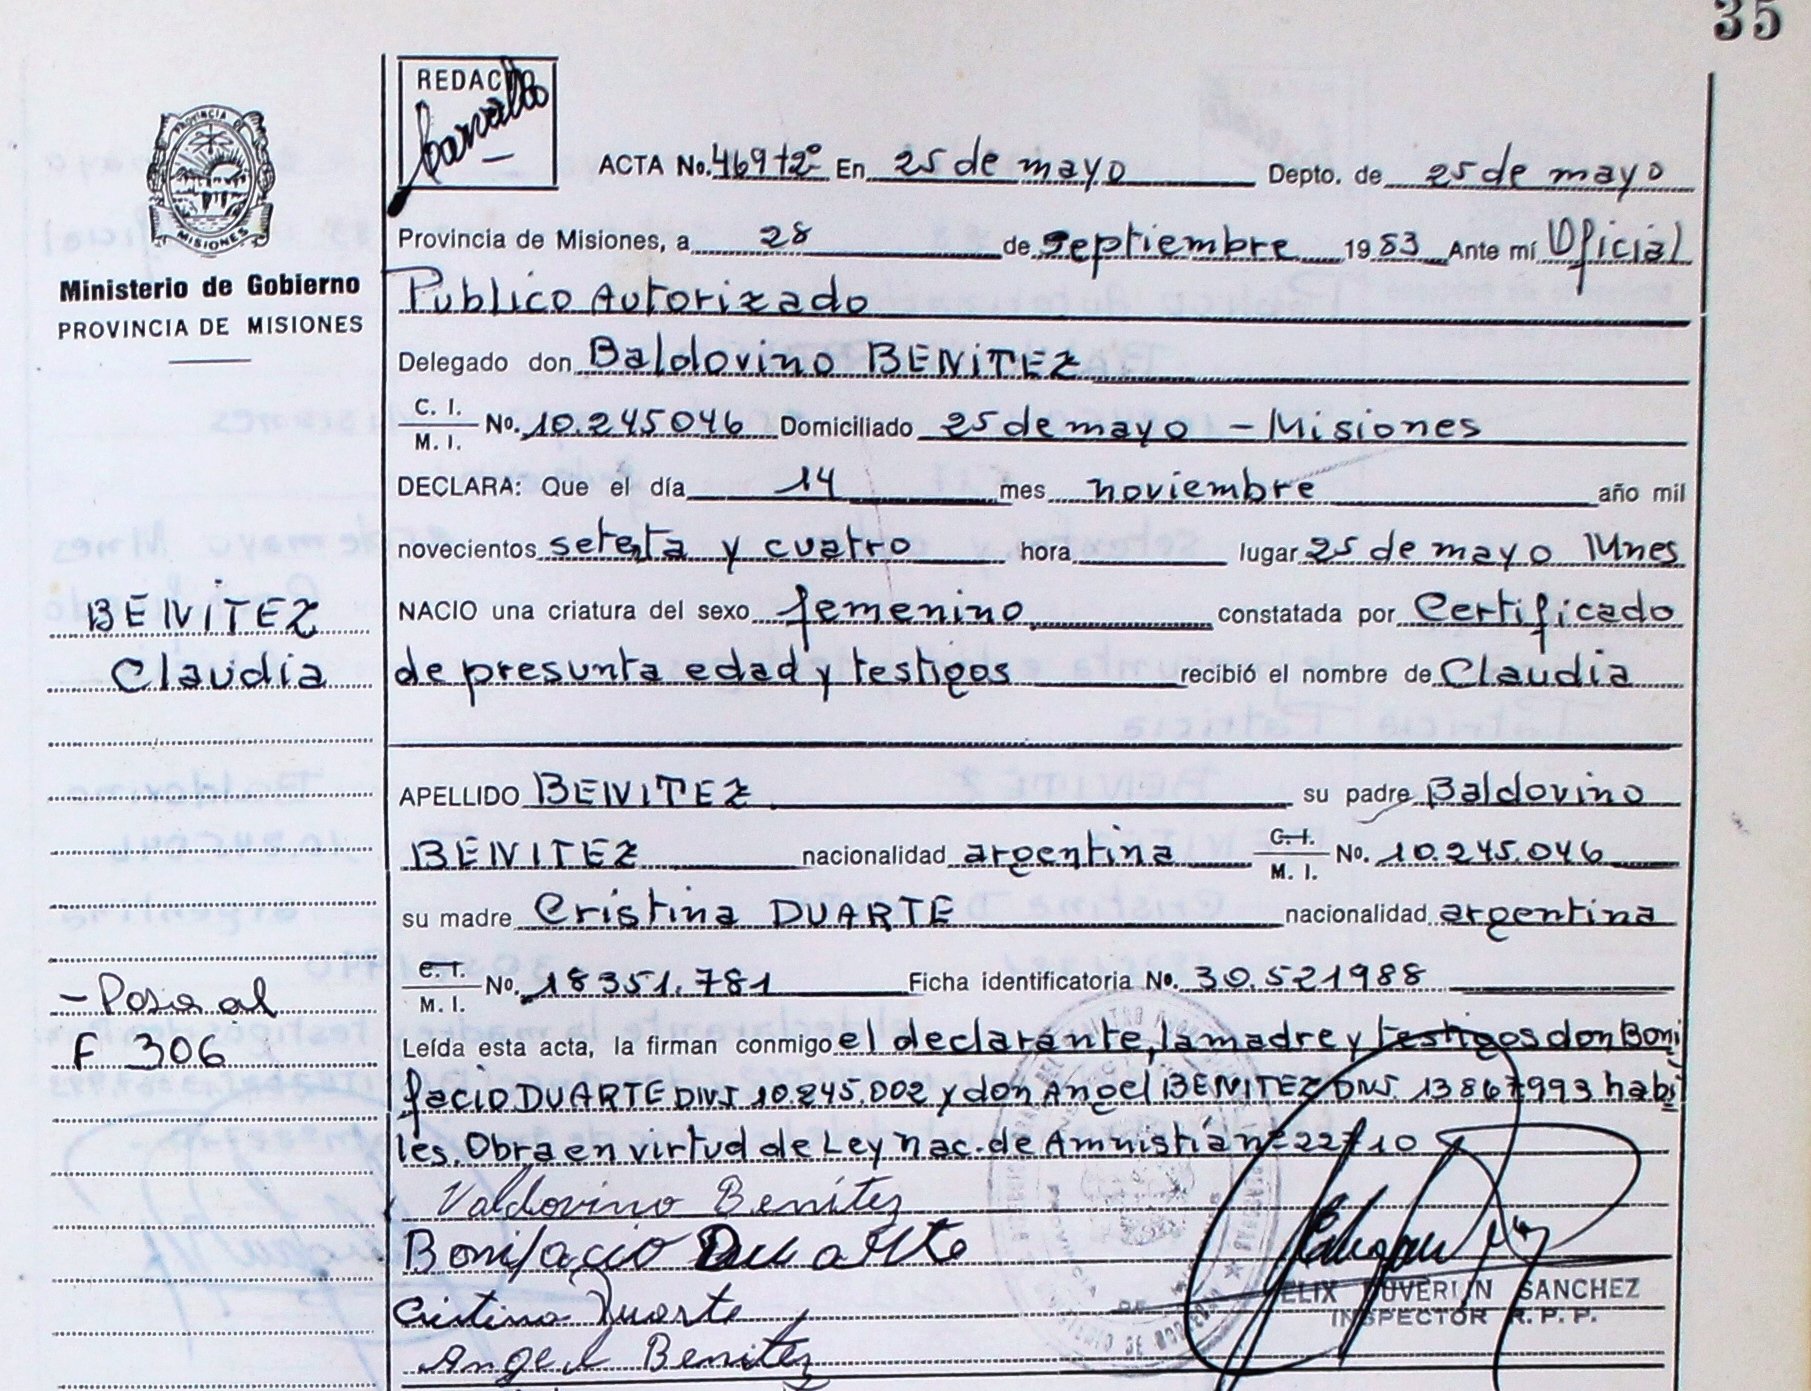 35
REDAC
Carvallo
PROVINCIA DE
MISIONES
ACTA No. 469 t 2º En 25 de mayo Depto. de 25 de mayo
Provincia de Misiones, a 28 de septiembre 1983 Ante mí Oficial
Ministerio de Gobierno
PROVINCIA DE MISIONES
Publico Autorizado
Delegado don Baldovino BENITEZ
C. I.
M. I. No. 10.245046 Domiciliado 25 de mayo - Misiones
DECLARA: Que el día 14 mes noviembre año mil
novecientos setenta y cuatro hora lugar 25 de mayo Mnes
BENITEZ
NACIO una criatura del sexo femenino constatada por Certificado
Claudia
de presunta edad y testigos recibió el nombre de Claudia
APELLIDO BENITEZ su padre Baldovino
BENITEZ nacionalidad argentina C. I. M. I. No. 10.245.046
su madre Cristina DUARTE nacionalidad argentina
C. I.
M. I. No. 18351.781 Ficha identificatoria No. 30.521988
- Pasa al
F 306
Leída esta acta, la firman conmigo el declarante, la madre y testigos don Boni
facio DUARTE DNI 10.245.002 y don Angel BENITEZ DNI. 13867993 habi
les. Obra en virtud de Ley Nac. de Amnistia nº 22710
Valdovino Benitez
Bonifacio Duarte
Cristina Duarte
Angel Benitez
FELIX SANCHEZ
INSPECTOR R. P. P.